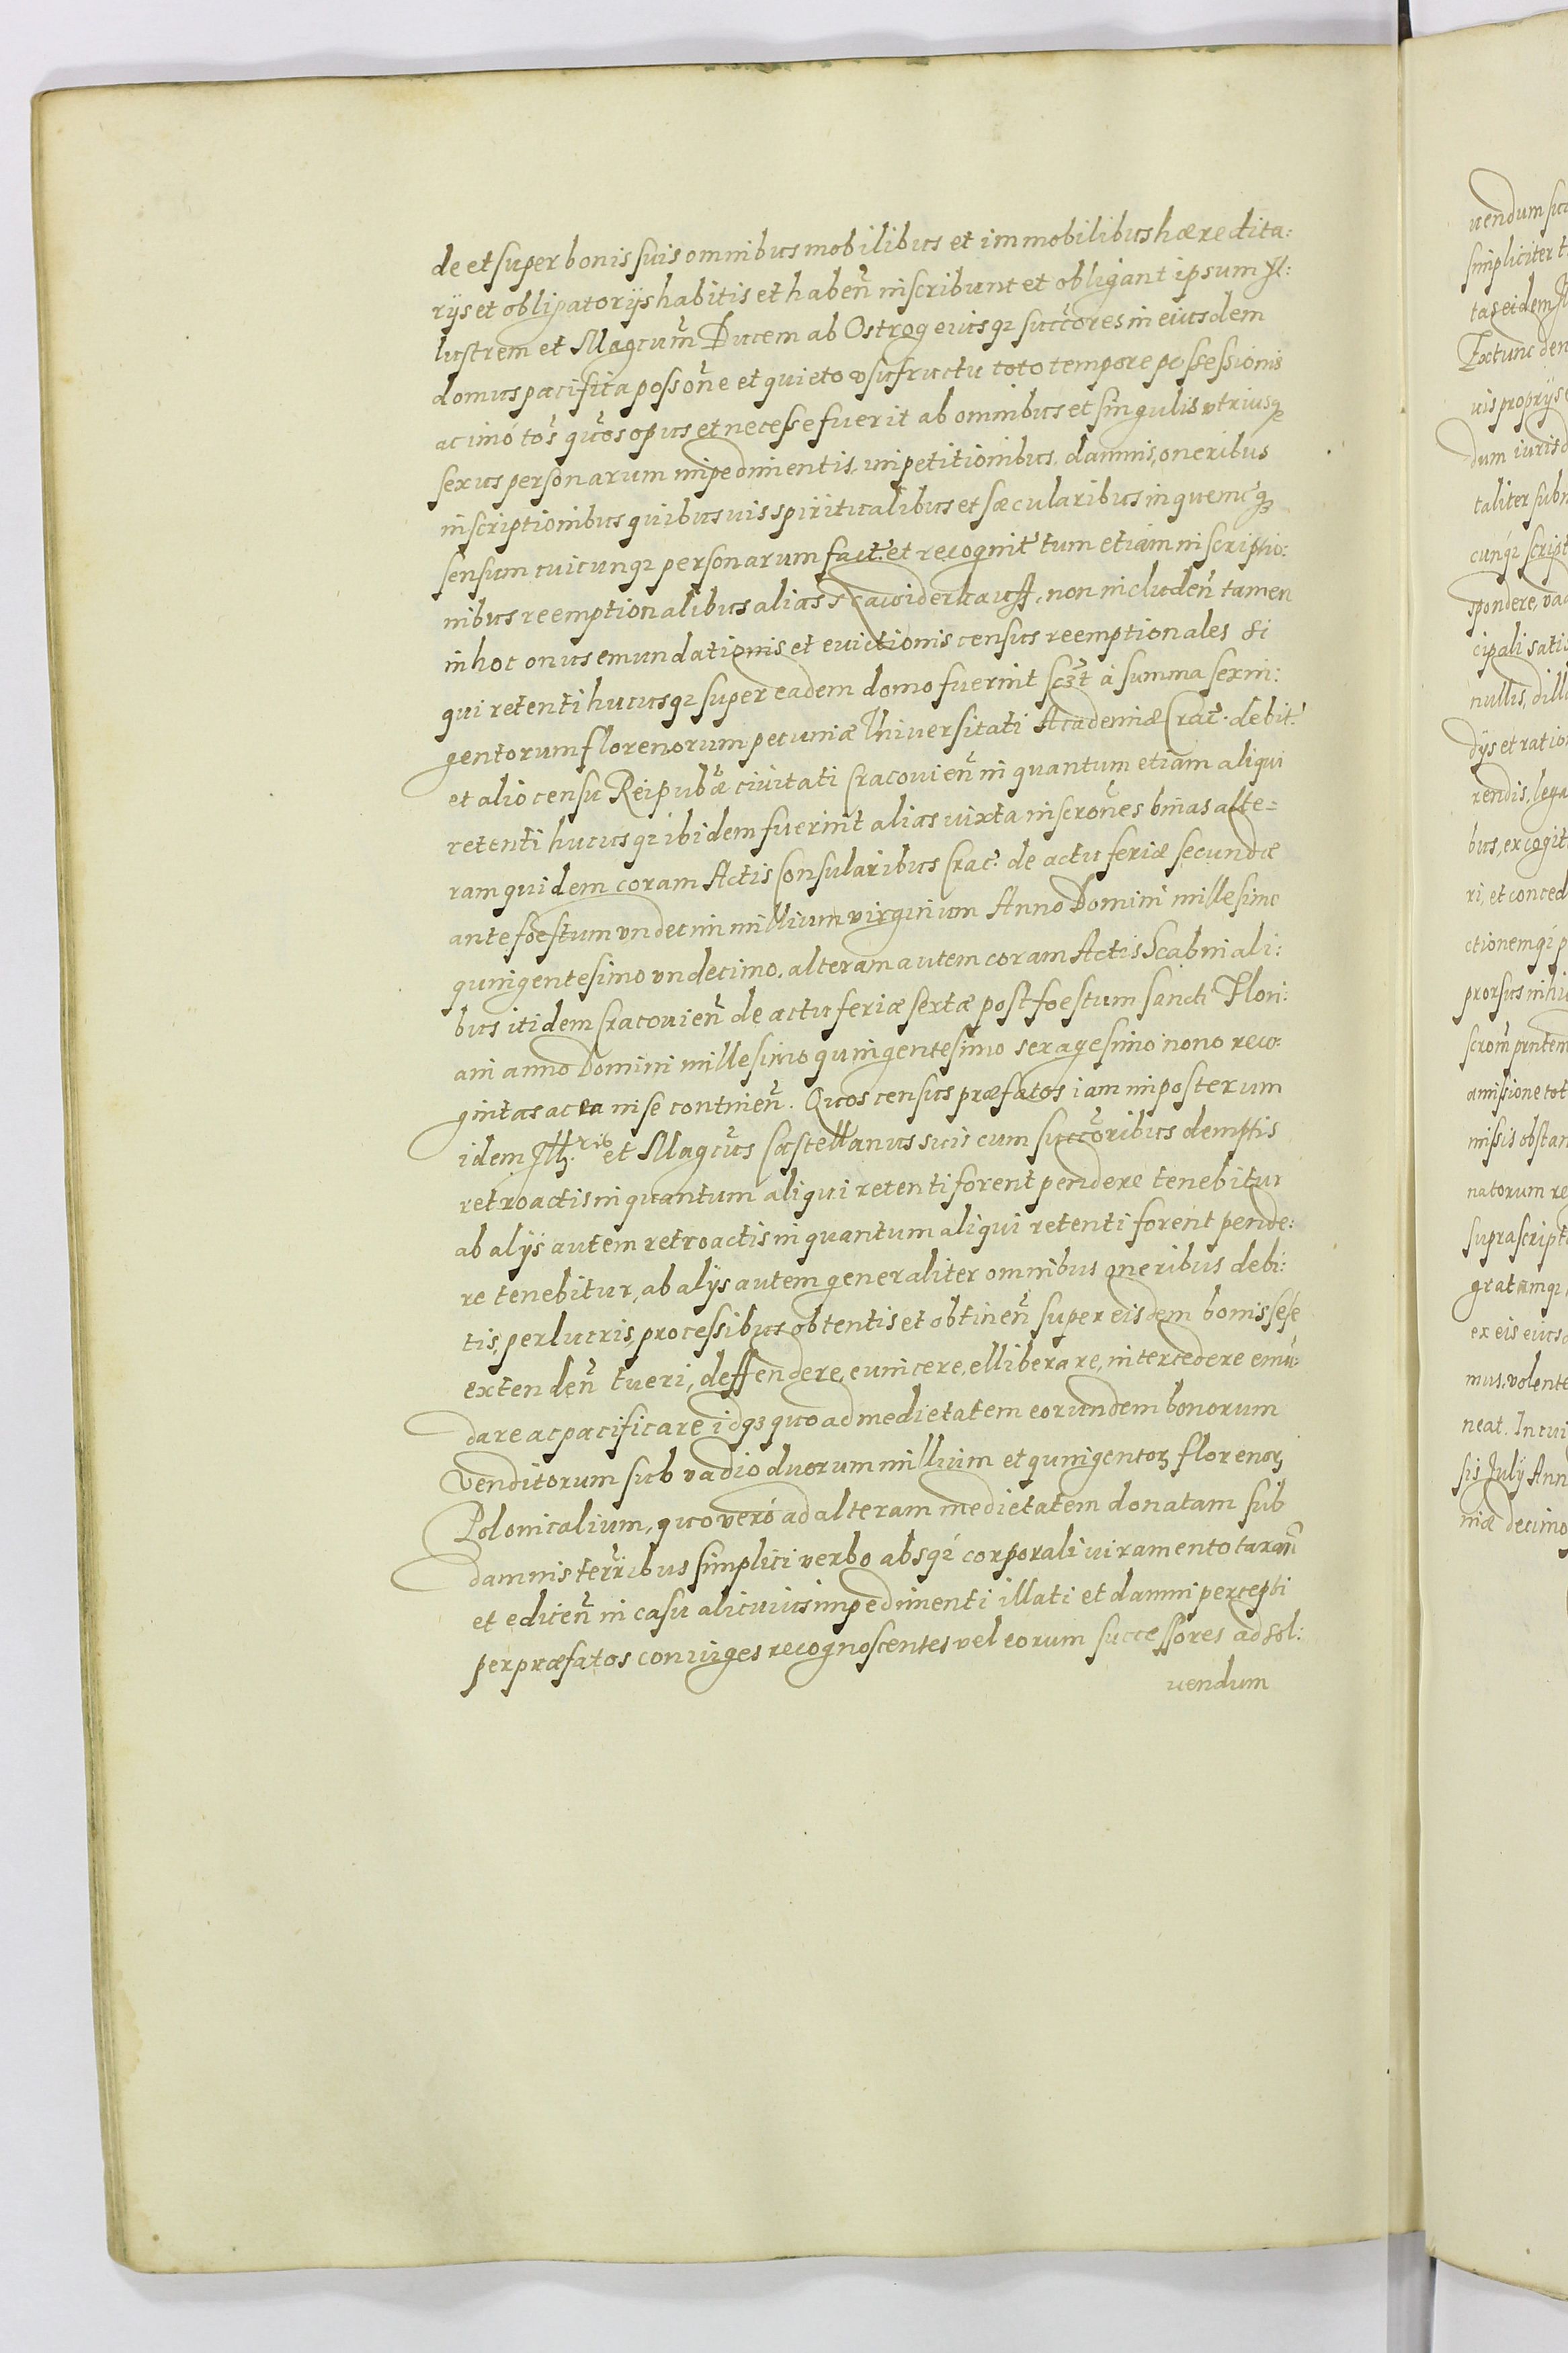 de et super bonis suis omnibus mobilibus et immobilibus hæredita:
rijs et obligatorijs habitis et habeñ inscribunt et obligant ipsum Il:
lustrem et Magcum̃ Ducem ab Ostrog eiusq₃ succ̃ores in eiusdem
domus pacifica possoñe et quieto vsufructu toto tempore possessionis
ac imó tos̃ quõs opus et necesse fuerit ab omnibus et singulis vtriusq₃
sexus personarum impedimentis, impetitionibus, damnis, oneribus
inscriptionibus quibusuis spiritualibus et sæcularibus in quemc̃q₃
sensum, cuicunq₃ personarum fact̃. et recognit̃ tum etiam inscriptio:
nibus reemptionalibus alias non includeñ tamen
in hoc onus emundationis et euictionis census reemptionales si
qui retenti hucusq₃ super eadem domo fuerint sc₃t̃ à summa sexin:
gentorum florenorum pecuniæ Vniuersitati Academiæ Crac̃. debit̃.
et alio censu Reipub̃æ ciuitati Cracouieñ in quantum etiam aliqui
retenti hucusq₃ ibidem fuerint alias iuxta inscroñes binas alte=
ram quidem coram Actis Consularibus Crac̃. de actu feriæ secundæ
ante foestum vndecim millium virginum Anno Domini millesimo
quingentesimo vndecimo, alteram autem coram Actis Scabinali:
bus itidem Cracouieñ de actu feriæ sextæ post foestum sancti Flori:
ani anno Domini millesimo quingentesimo sexagesimo nono reco:
gnitas ac ea in se contineñ. Quos census præfatos iam imposterum
idem Ill₃.ris et Magcũs Castellanus suis cum succõribus demptis
retroactis in quantum aliqui retenti forent pendere tenebitur
ab alijs autem retroactis in quantum aliqui retenti forent pende:
re tenebitur, ab alijs autem generaliter omnibus oneribus debi:
tis, perlucris, processibus obtentis et obtineñ super eisdem bonis sese
extendeñ tueri, deffendere, euincere, elliberare, intercedere emũ:
dare ac pacificare idq₃ quo ad medietatem eorundem bonorum
venditorum sub vadio duorum millium et quingentoꝝ florenoꝝ
Polonicalium, quo veró ad alteram medietatem donatam sub
damnis terr̃ibus simplici verbo absq₃ corporali iuramento taxañ
et ediceñ in casu alicuius impedimenti illati et damni percepti
per præfatos coniuges recognoscentes vel eorum successores ad sol:
uendum